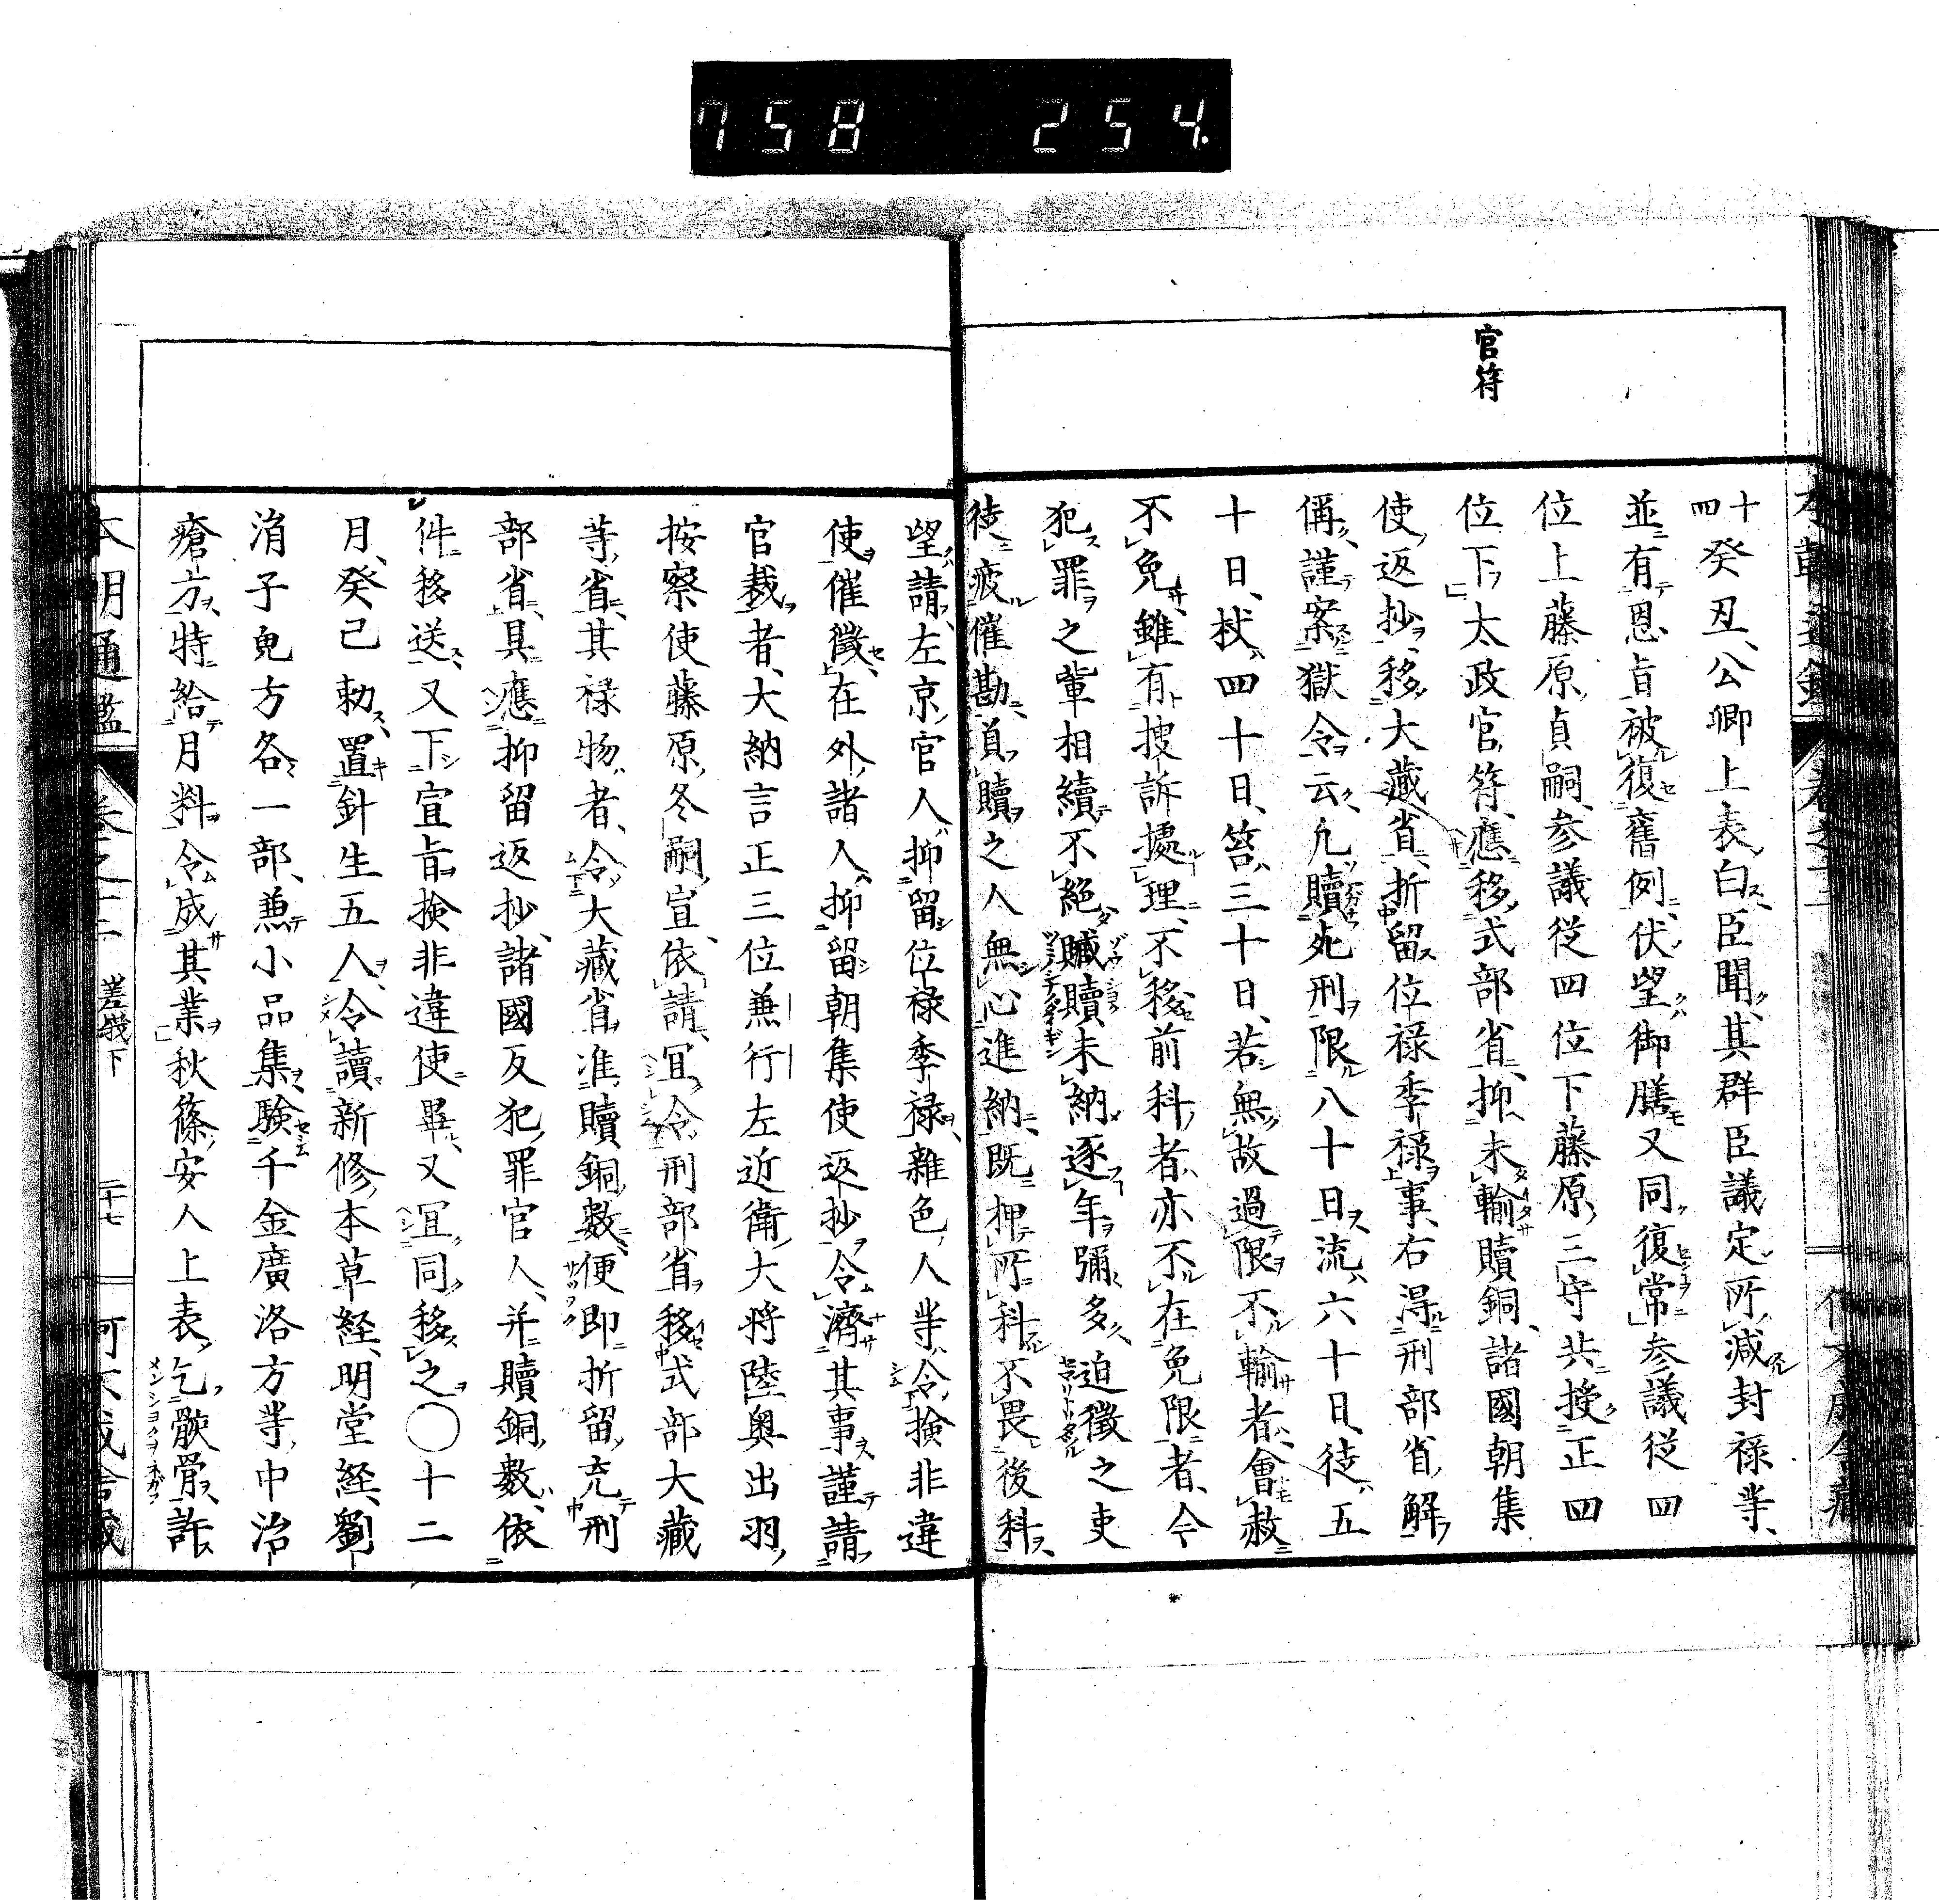 758 254.
官符
十四癸丑、公卿上表、白、臣聞、其群臣議定所減封禄等、
並有恩旨被復舊例、伏望御膳又同復常、参議従四
位上藤原貞嗣、参議従四位下藤原三守共授正四
位下、太政官符、應移式部省、抑未輸贖銅、諸國朝集
使返抄、移大藏省、折留位禄季禄事、右得刑部省解
偁、謹案獄令云、凡贖死刑限八十日、流六十日、徒五
十日、杖四十日、笞三十日、若無故過限不輸者、會赦
不免、雖有披訴據理、不移前科者、亦不在免限者、今
犯罪之輩相續不絶、贓贖未納逐年彌多、迫徴之吏
徒疲催勘、負贖之人無心進納、既押所科不畏後科、
望請、左京官人抑留位禄季禄、雜色人等、令撿非違
使催徴、在外諸人抑留朝集使返抄、令濟其事、謹請
官裁者、大納言正三位兼行左近衛大将陸奥出羽
按察使藤原冬嗣宣、依請、宜令刑部省移式部大藏
等省、其禄物者、令大藏省准贖銅數、便即折留、充刑
部省、具應抑留返抄、諸國反犯罪官人、并贖銅數、依
件移送、又下宣旨撿非違使畢、又宜同移之〇十二
月、癸己勅、置針生五人、令讀新修本草經、明堂經、劉
涓子鬼方各一部、兼小品集驗千金廣洛方等、中治
瘡方、特給月料、令成其業、秋篠安人上表、乞骸骨、許、
本朝通鑑 卷之十二 嵯峨下 二十七